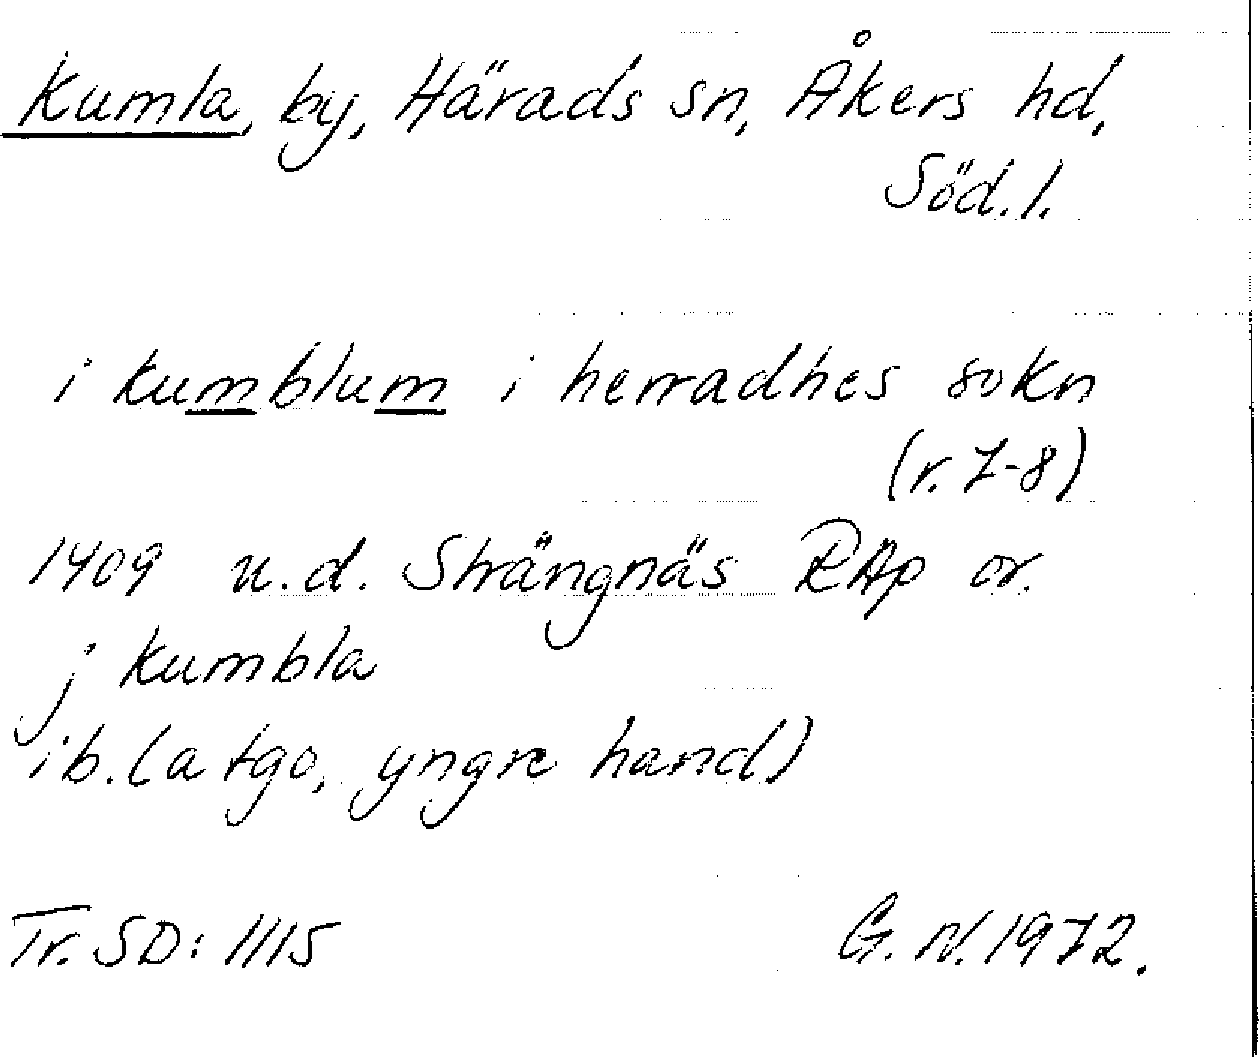 Kumla, by, Härads sn, Åkers hd,
Söd.l.
i kumblum i herradhes sokn
(r. 7-8)
1409 u.d. Strängnäs RAp or.
j kumbla
ib. (a tgo, yngre hand)
Tr. SD: 1115 G. N. 1972.